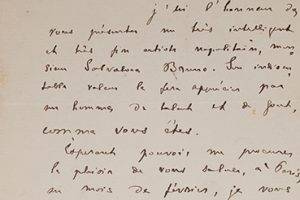 j'ai l'honneur de
vous présenter un très intelligent
et très fin artiste napolitain, mon
sieur Salvatore Bruno. Son indiscu
table valeur le fera apprécier par
un homme de talent et de goût,
comme vous êtes.
Esperant pouvoir me procurer
le plaisir de vous saluer, à Paris,
au mois de février, je vous